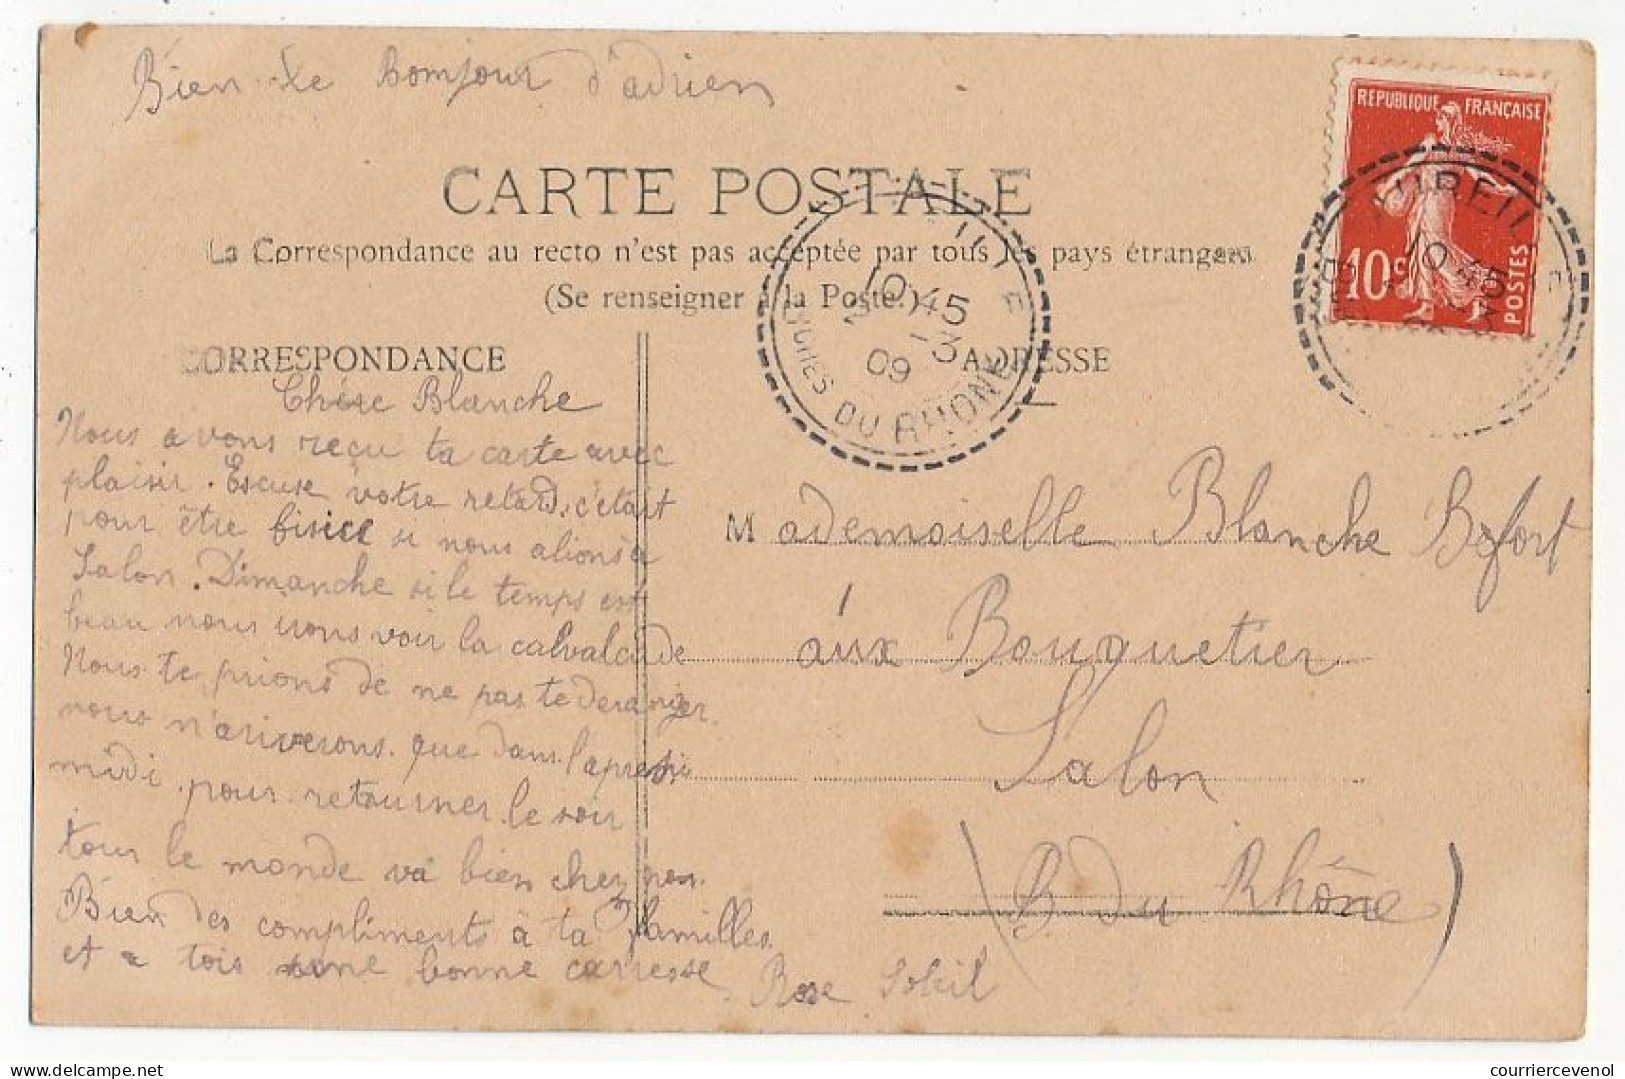 Bien le Bomjour d'adrien
REPUBLIQUE FRANÇAISE
10c
POSTES
CARTE POSTALE
La Correspondance au recto n'est pas acceptée par tous les pays étrangers
(Se renseigner à la Poste.)
CORRESPONDANCE
ADRESSE
10.45
-3
09
BOUCHES DU RHONE
AUREILLE
10 45
Chére Blanche
Nous avons reçu ta carte avec
plaisir. Escuse votre retard, c'etait
pour être si nous alions a
Salon. Dimanche si le temps est
beau nous irons voir la calvalcade
Nous te prions de ne pas te deranger
nous n'ariverons que dans l'apres
midi pour retourner le soir
tous le monde va bien chez nous.
Bien des compliments à ta familles
et a tois une bonne carresse
Rose Soleil
Mademoiselle Blanche Bofort
aux Bouquetier
Salon
(B du Rhône)
courriercevenol